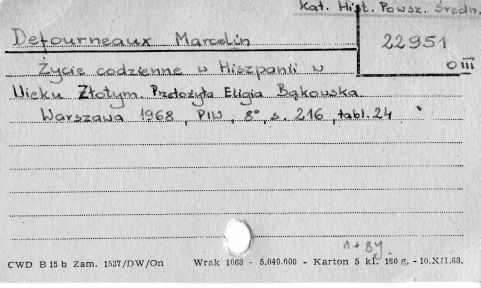 Kat. Hist. Powsz. Średn.
Defourneaux Marcelin
22951
O III
Życie codzienne w Hiszpanii w
Wieku Złotym. Przełożyła Eligia Bąkowska.
Warszawa 1968, PIW, 8°, s. 216, tabl. 24
1 + 8y
CWD B 15 b Zam. 1537/DW/On Wrak 1068 - 5.040.000 - Karton 5 kl. 180 g. - 10.XII.68.